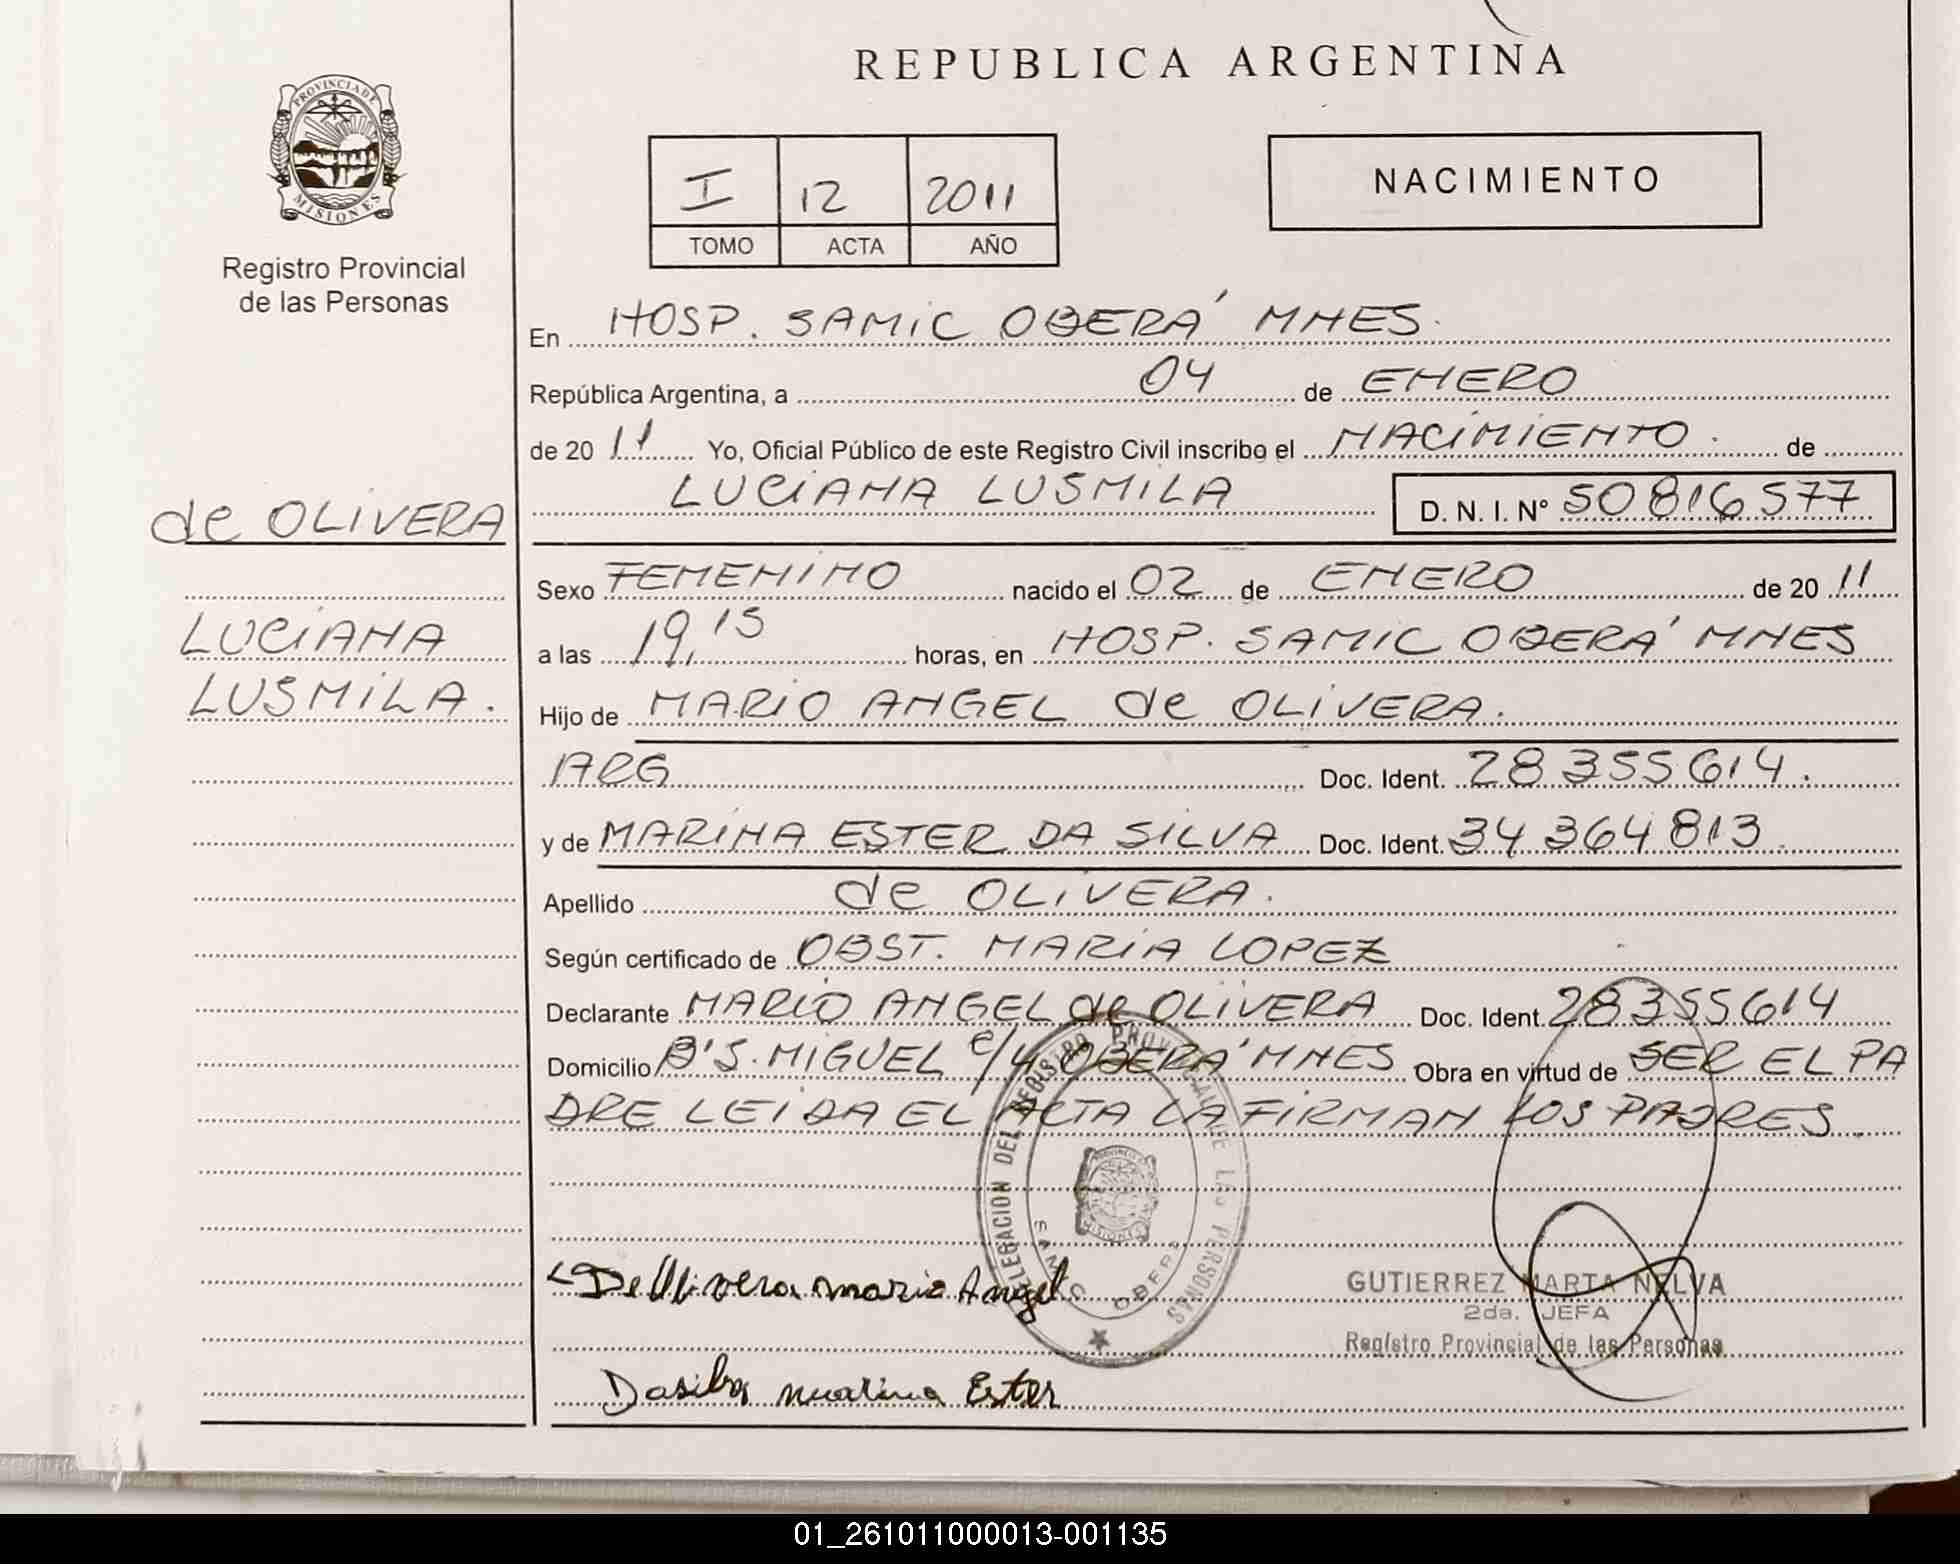 REPUBLICA ARGENTINA
PROVINCIA DE
MISIONES
Registro Provincial
de las Personas
I 12 2011
TOMO ACTA AÑO
NACIMIENTO
En HOSP. SAMIC OBERÁ MNES.
República Argentina, a 04 de ENERO
de 20 11 Yo, Oficial Público de este Registro Civil inscribo el NACIMIENTO. de
LUCIANA LUSMILA D. N. I. Nº 50816577
de OLIVERA
LUCIANA
LUSMILA.
Sexo FEMENINO nacido el 02 de ENERO de 20 11
a las 19,15 horas, en HOSP. SAMIC OBERÁ MNES
Hijo de MARIO ANGEL de OLIVERA.
ARG Doc. Ident. 28355614.
y de MARINA ESTER DA SILVA Doc. Ident. 34364813
Apellido de OLIVERA.
Según certificado de OBST. MARIA LOPEZ
Declarante MARIO ANGEL de OLIVERA Doc. Ident. 28355614
Domicilio B'S. MIGUEL C/4 OBERÁ MNES Obra en virtud de SER EL PA
DRE LEIDA EL ACTA LA FIRMAN LOS PADRES
DELEGACION DEL REGISTRO PROVINCIAL DE LAS PERSONAS
SAMIC OBERA
De Olivera mario Angel
GUTIERREZ MARTA NELVA
2da. JEFA
Registro Provincial de las Personas
Dasilva marina Ester
01_261011000013-001135